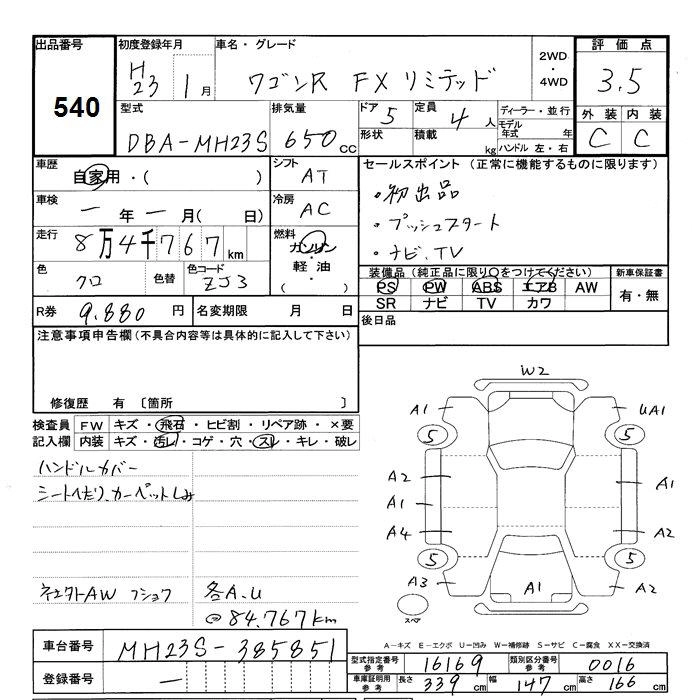 出品番号 初度登録年月 車名・グレード 2WD・4WD 評価点
540 H23 1月 ワゴンR FX リミテッド 3.5
型式 排気量 ドア 5 定員 4人 ディーラー・並行 外装 内装
DBA-MH23S 650cc 形状 積載 kg モデル年式 年 C C
ハンドル 左・右
車歴 シフト セールスポイント (正常に機能するものに限ります)
自家用・( ) AT ・初出品
車検 冷房 ・プッシュスタート
ー年ー月( 日) AC ・ナビ、TV
走行 8万4千767km 燃料 ガソリン・軽油・( )
色 クロ 色替 色コード ZJ3
装備品 (純正品に限り○をつけてください) 新車保証書
PS PW ABS エアB AW 有・無
SR ナビ TV カワ
R券 9,880円 名変期限 月 日 後日品
注意事項申告欄 (不具合内容等は具体的に記入して下さい)
修復歴 有 〔箇所 〕
検査員記入欄 FW キズ・飛石・ヒビ割・リペア跡・×要
内装 キズ・汚レ・コゲ・穴・スレ・キレ・破レ
ハンドルカバー
シートへたり、カーペットしみ
AW フショク 各A.U
@84,767km
W2
A1 UA1
5 5
A2 A1
A1
A4 A2
5 5
A3 A1 A2
スペア
A-キズ E-エクボ U-凹み W-補修跡 S-サビ C-腐食 XX-交換済
車台番号 MH23S-385851
型式指定番号 参考 16169 類別区分番号 参考 0016
登録番号 ー
車庫証明用 参考 長さ 339cm 幅 147cm 高さ 166cm